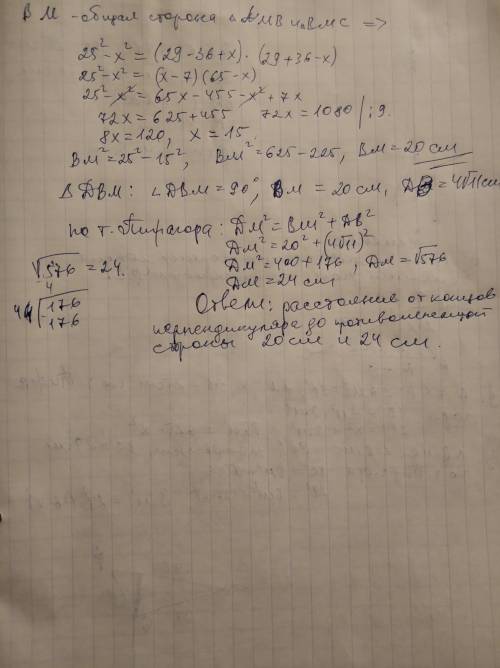 ВМ - общая сторона ΔАМВ и ΔВМС =>
25² - x² = (29 - 36 + x) · (29 + 36 - x)
25² - x² = (x - 7)(65 - x)
25² - x² = 65x - 455 - x² + 7x
72x = 625 + 455 72x = 1080 | : 9.
8x = 120, x = 15.
ВМ² = 25² - 15², ВМ² = 625 - 225, ВМ = 20 см
Δ DВМ: ∠DВМ = 90°, ВМ = 20 см, DВ = 4√11 см
по т. Пифагора: DМ² = ВМ² + DВ²
DМ² = 20² + (4√11)²
√576 = 24. DМ² = 400 + 176, DМ = √576
4 DМ = 24 см
44 √176
-176
Ответ: расстояние от концов
перпендикуляра до противолежащей
стороны 20 см и 24 см.